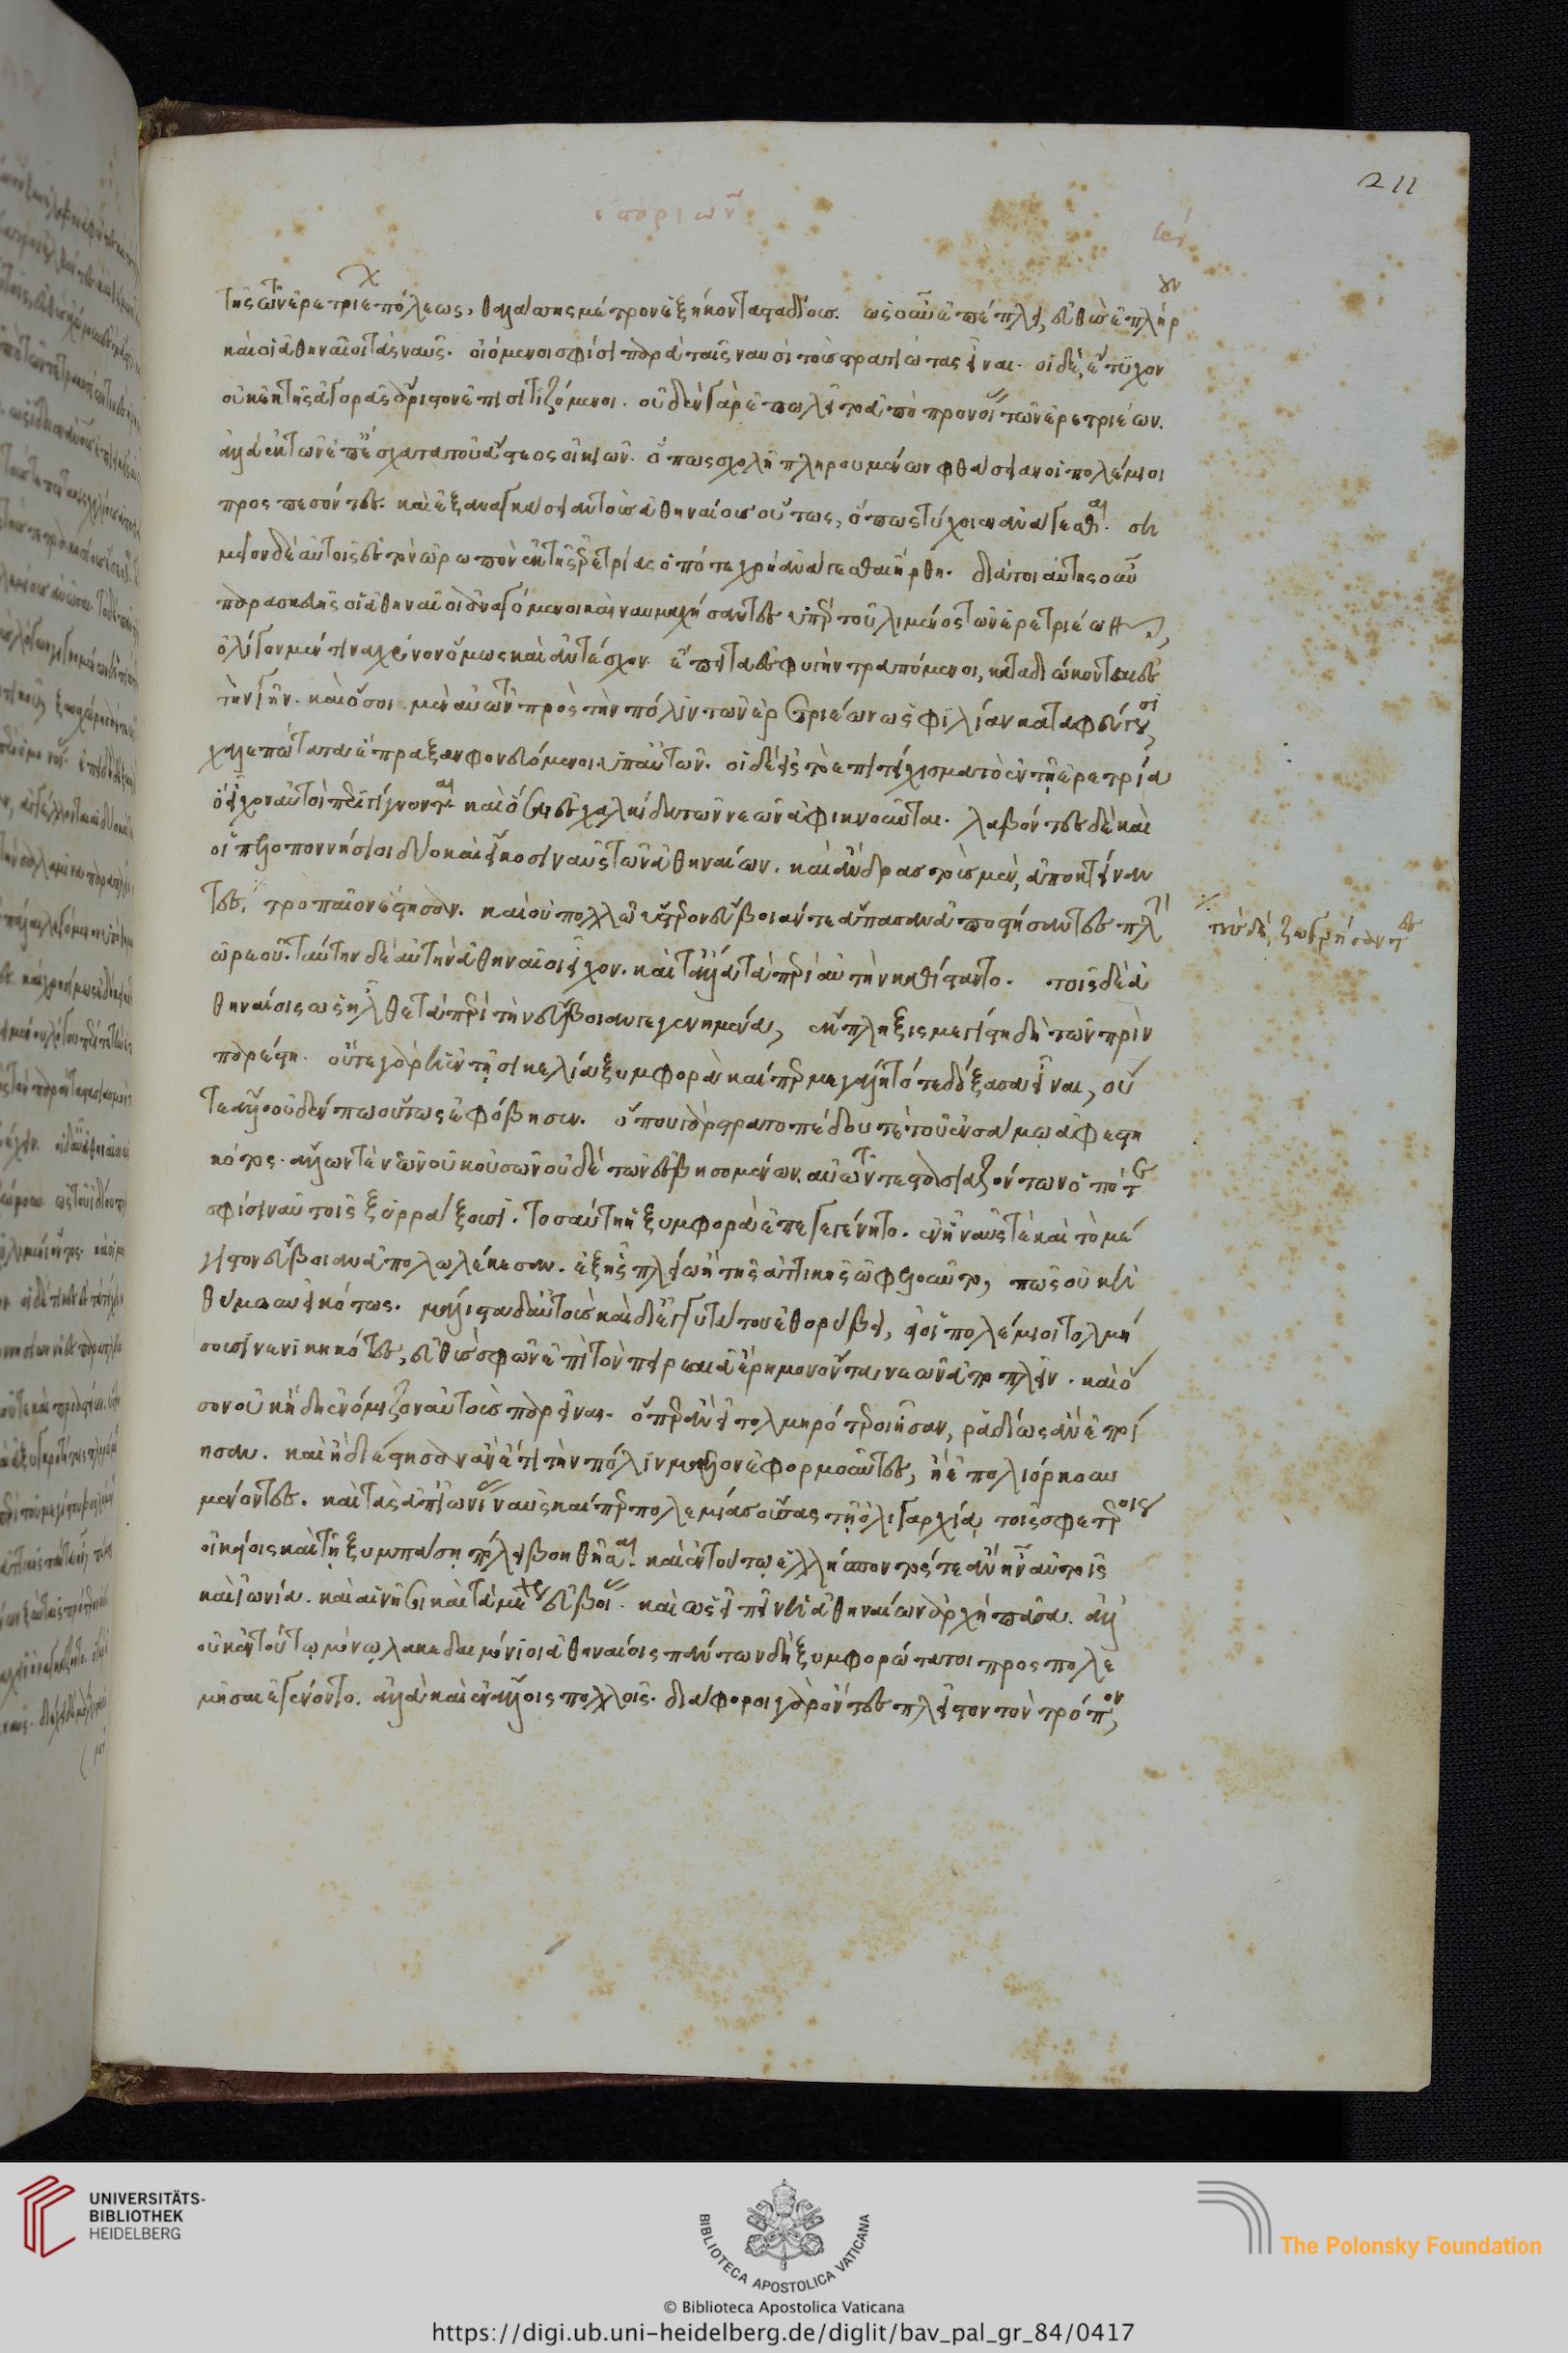 ἱστοριῶν
211
τῆς τῶν ἐρετριέων πόλεως, θαλάσσης μέτρον ἑξήκοντα σταδίους. ὡς οὖν ἐπέπλει, εὐθὺς ἐπλήρουν
καὶ οἱ ἀθηναῖοι τὰς ναῦς. οἰόμενοι σφίσι παρὰ ταῖς ναυσὶ τοὺς στρατιώτας εἶναι. οἱ δὲ, ἔτυχον
οὐκ ἐκ τῆς ἀγορᾶς ἄριστον ἐπισιτιζόμενοι. οὐδὲν γὰρ ἐπωλεῖτο ἀπὸ προνοίας τῶν ἐρετριέων.
ἀλλὰ ἐκ τῶν ἐπ' ἔσχατα τοῦ ἄστεος οἰκιῶν. ὅπως σχολῇ πληρουμένων φθάσειαν οἱ πολέμιοι
προσπεσόντες. καὶ ἐξαναγκάσειαν τοὺς ἀθηναίους οὕτως, ὅπως τύχοιεν ἀνάγεσθαι. ση
μεῖον δὲ αὐτοῖς ἐς τὸν ὠρωπὸν ἐκ τῆς ἐρετρίας ὁπότε χρὴ ἀνάγεσθαι ἤρθη. διὰ τοιαύτης οὖν
παρασκευῆς οἱ ἀθηναῖοι ἀναγόμενοι καὶ ναυμαχήσαντες ὑπὲρ τοῦ λιμένος τῶν ἐρετριέων
ὀλίγον μέν τινα χρόνον ὅμως καὶ ἀντέσχον. ἔπειτα ἐς φυγὴν τραπόμενοι, καταδιώκονται ἐς
τὴν γῆν. καὶ ὅσοι μὲν αὐτῶν πρὸς τὴν πόλιν τῶν ἐρετριέων ὡς φιλίαν καταφεύγουσι,
χαλεπώτατα ἔπραξαν φονευόμενοι ὑπ' αὐτῶν. οἱ δὲ ἐς τὸ ἐπιτείχισμα τὸ ἐν τῇ ἐρετρία
ὃ εἶχον αὐτοὶ περιγίγνονται καὶ ὅσαι ἐς χαλκίδα τῶν νεῶν ἀφικνοῦνται. λαβόντες δὲ καὶ
οἱ πελοποννήσιοι δύο καὶ εἴκοσι ναῦς τῶν ἀθηναίων. καὶ ἄνδρας τοὺς μὲν, ἀποκτείναν
τες, τροπαῖον ἔστησαν. καὶ οὐ πολλῶ ὕστερον εὔβοιάν τε ἅπασαν ἀποστήσαντες πλὴν
τοὺς δὲ, ζωγρήσαντες
ὠρεοῦ. ταύτην δὲ αὐτὴν ἀθηναῖοι εἶχον. καὶ τἄλλα τὰ περὶ αὐτὴν καθίσταντο. τοῖς δὲ ἀ
θηναίοις ὡς ἦλθε τὰ περὶ τὴν εὔβοιαν γεγενημένα, ἔκπληξις μεγίστη δὴ τῶν πρὶν
παρέστη. οὔτε γὰρ ἡ ἐν τῇ σικελία ξυμφορὰ καίπερ μεγάλη τότε δόξασα εἶναι, οὔ
τε ἄλλο οὐδέν πω οὕτως ἐφόβησεν. ὅπου γὰρ στρατοπέδου τε τοῦ ἐν σάμῳ ἀφεστη
κότος. ἄλλων τε νεῶν οὐκ οὐσῶν οὐδὲ τῶν ἐσβησομένων. αὐτῶν τε στασιαζόντων ὁπότε
σφίσιν αὐτοῖς ξυρράξουσι. τοσαύτη ἡ ξυμφορὰ ἐπεγεγένητο. ἐν ᾗ ναῦς τὲ καὶ τὸ μέ
γιστον εὔβοιαν ἀπολωλέκεσαν. ἐξ ἧς πλείω ἢ τῆς ἀττικῆς ὠφελοῦντο, πῶς οὐκ
θύμουν εἰκότως. μάλιστα δ' αὐτοὺς καὶ δι' ἐγγυτάτου ἐθορύβει, εἰ οἱ πολέμιοι τολμή
σουσι νενικηκότες, εὐθὺς σφῶν ἐπὶ τὸν πειραιᾶ ἐρῆμον ὄντα νεῶν πλεῖν. καὶ ὅ
σον οὐκ ἤδη ἐνόμιζον αὐτοὺς παρεῖναι. ὅπερ ἂν εἰ τολμηρότεροι ἦσαν, ῥᾳδίως ἂν ἐποί
ησαν. καὶ ἢ διέστησαν ἂν ἔτι τὴν πόλιν μᾶλλον ἐφορμοῦντες, ἢ ἐπολιόρκουν
μένοντες. καὶ τὰς ἀπ' ἰωνίας ναῦς καίπερ πολεμίας οὔσας τῇ ὀλιγαρχία, τοῖς σφετέροις
οἰκείοις καὶ τῇ ξυμπάσῃ πόλει βοηθῆσαι. καὶ ἐν τούτῳ ἑλλήσποντός τε ἂν ἦν αὐτοῖς
καὶ ἰωνία. καὶ αἱ νῆσοι καὶ τὰ μέχρι εὐβοίας. καὶ ὡς εἰπεῖν ἡ ἀθηναίων ἀρχὴ πᾶσα. ἀλλ'
οὐκ ἐν τούτῳ μόνῳ λακεδαιμόνιοι ἀθηναίοις πάντων δὴ ξυμφορώτατοι προσπολε
μῆσαι ἐγένοντο. ἀλλὰ καὶ ἐν ἄλλοις πολλοῖς. διάφοροι γὰρ ὄντες πλεῖστον τὸν τρόπον,
UNIVERSITÄTS-
BIBLIOTHEK
HEIDELBERG
BIBLIOTECA APOSTOLICA VATICANA
The Polonsky Foundation
© Biblioteca Apostolica Vaticana
https://digi.ub.uni-heidelberg.de/diglit/bav_pal_gr_84/0417